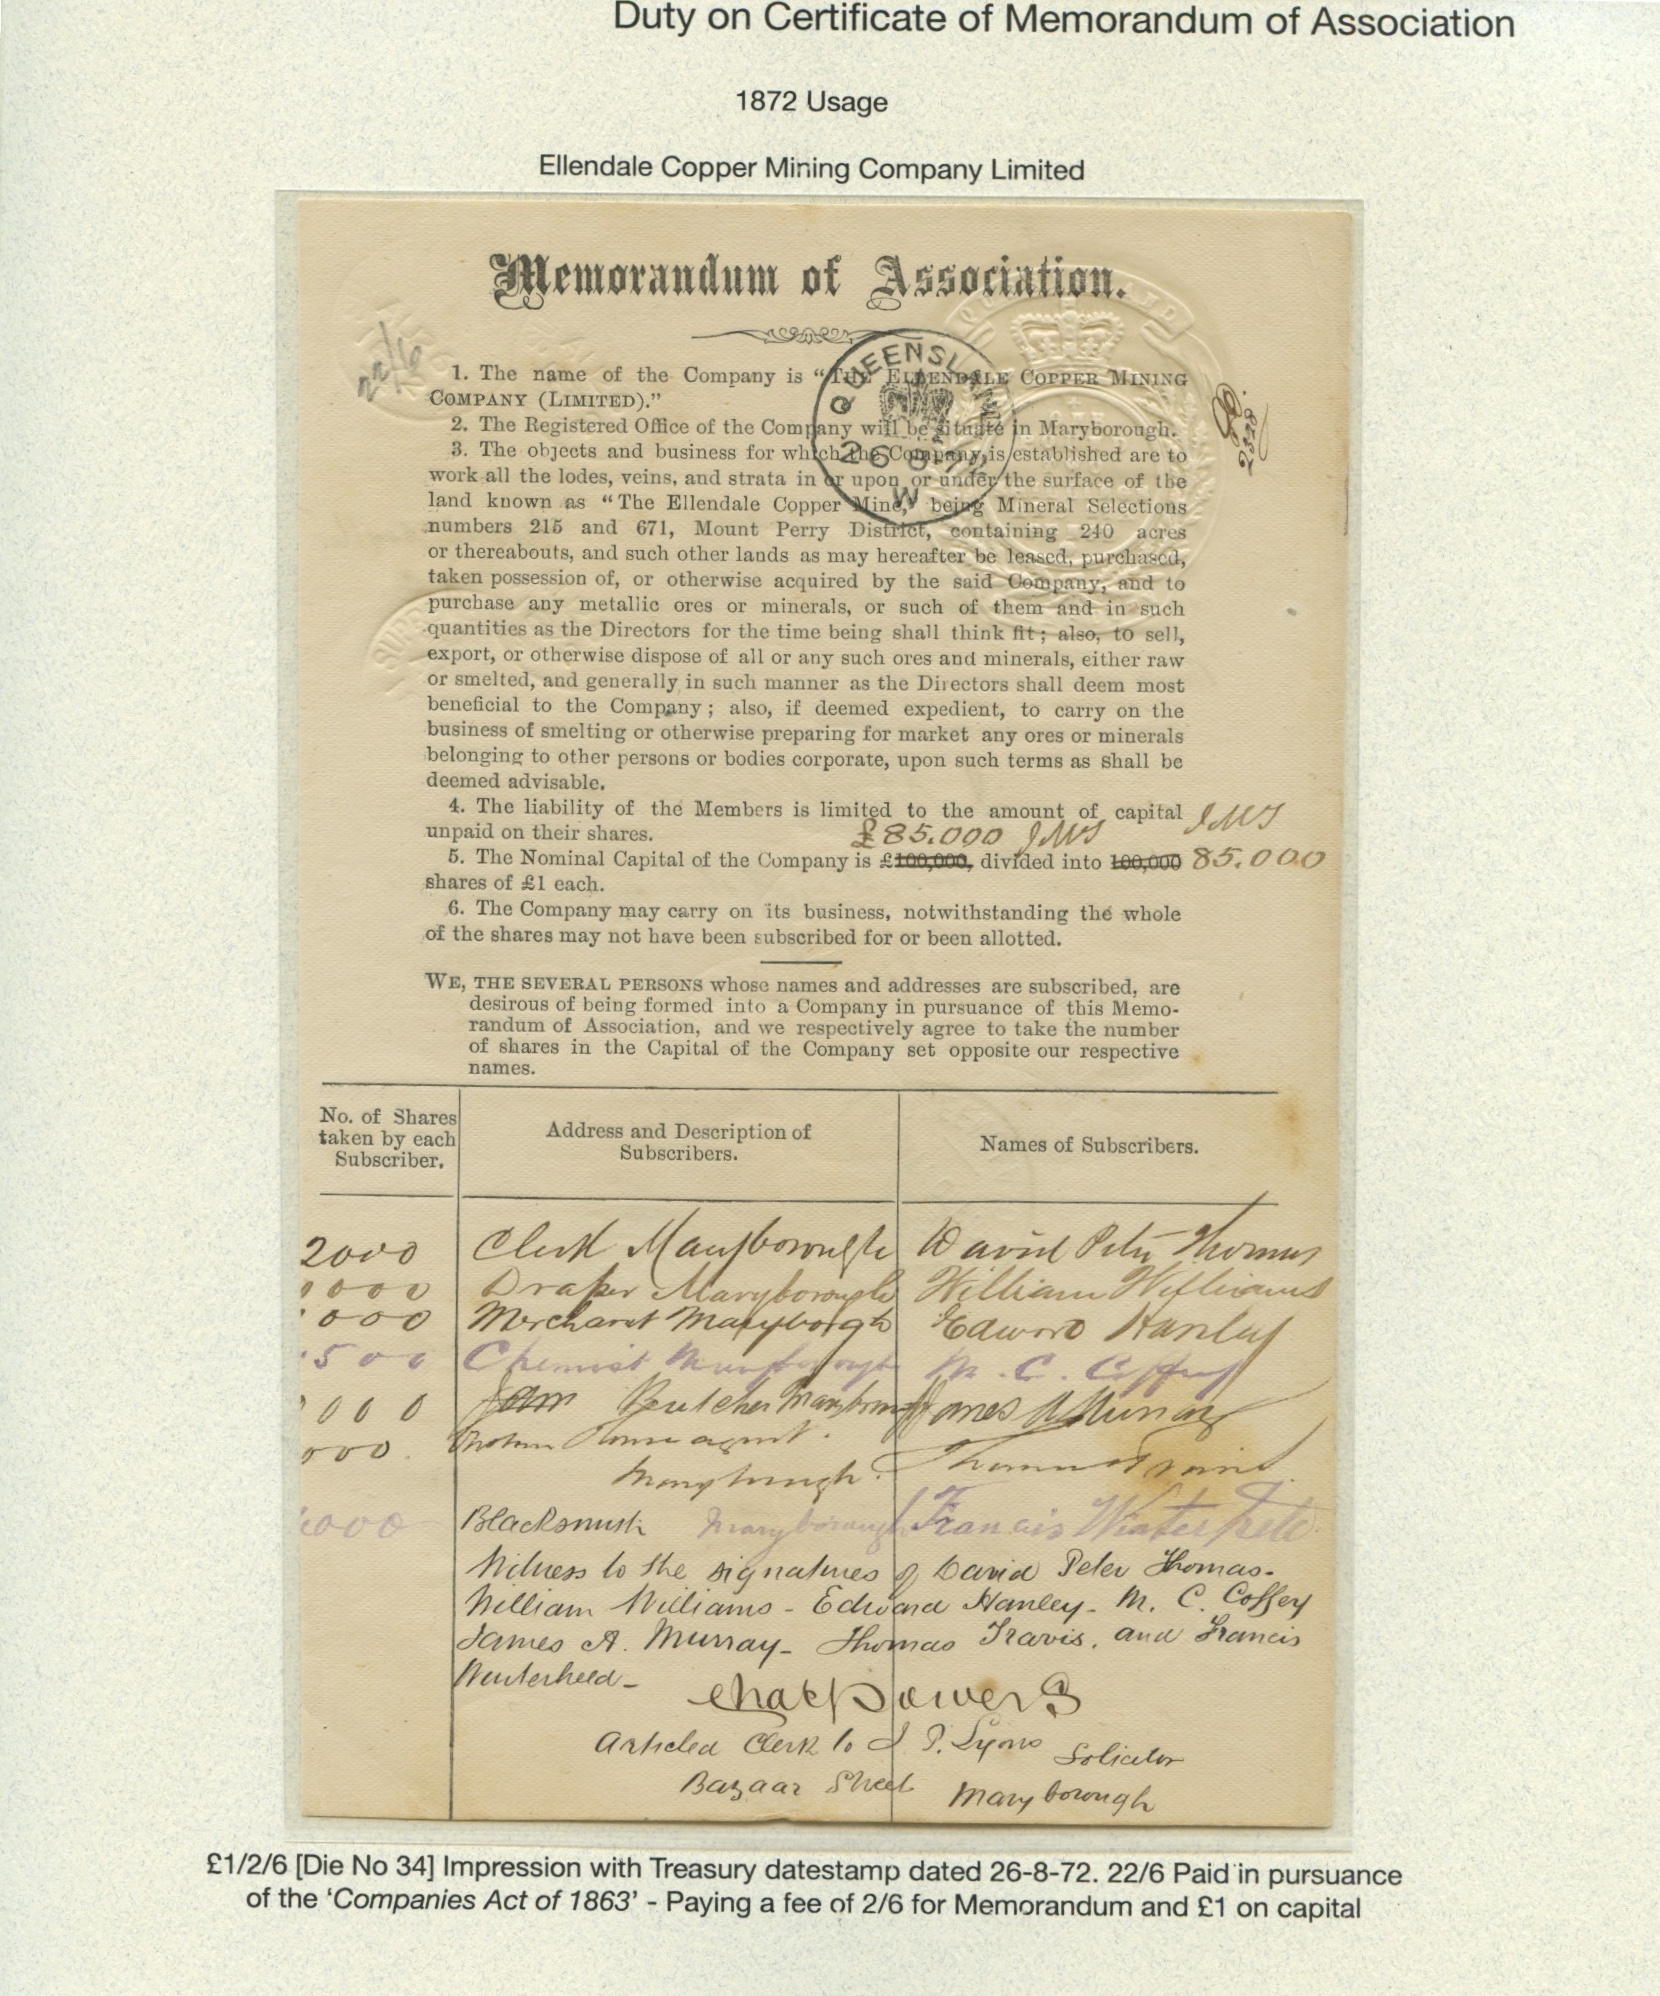 Duty on Certificate of Memorandum of Association
1872 Usage
Ellendale Copper Mining Company Limited
Memorandum of Association.
22/6
QUEENSL
26 8 72
W
1. The name of the Company is “THE ELLENDALE COPPER MINING
COMPANY (LIMITED).”
2. The Registered Office of the Company will be situate in Maryborough.
3. The objects and business for which the Company is established are to
work all the lodes, veins, and strata in or upon or under the surface of the
land known as “The Ellendale Copper Mine,” being Mineral Selections
numbers 215 and 671, Mount Perry District, containing 240 acres
or thereabouts, and such other lands as may hereafter be leased, purchased,
taken possession of, or otherwise acquired by the said Company, and to
purchase any metallic ores or minerals, or such of them and in such
quantities as the Directors for the time being shall think fit; also, to sell,
export, or otherwise dispose of all or any such ores and minerals, either raw
or smelted, and generally in such manner as the Directors shall deem most
beneficial to the Company; also, if deemed expedient, to carry on the
business of smelting or otherwise preparing for market any ores or minerals
belonging to other persons or bodies corporate, upon such terms as shall be
deemed advisable.
4. The liability of the Members is limited to the amount of capital
unpaid on their shares.
£85.000
5. The Nominal Capital of the Company is £100,000, divided into 100,000 85.000
shares of £1 each.
6. The Company may carry on its business, notwithstanding the whole
of the shares may not have been subscribed for or been allotted.
WE, THE SEVERAL PERSONS whose names and addresses are subscribed, are
desirous of being formed into a Company in pursuance of this Memo-
randum of Association, and we respectively agree to take the number
of shares in the Capital of the Company set opposite our respective
names.
No. of Shares
taken by each
Subscriber.
Address and Description of
Subscribers.
Names of Subscribers.
2000 Clerk Maryborough David Peter Thomas
000 Draper Maryborough William Williams
000 Merchant Maryborgh Edward Hanley
500 Chemist Maryborough M. C. Coffey
000 Butcher Maryborough James A Murray
000 agent. Thomas Travis
Maryborough.
000 Blacksmith Maryborough Francis Winterheld
Witness to the signatures of David Peter Thomas-
William Williams - Edward Hanley - M. C. Coffey
James A. Murray - Thomas Travis, and Francis
Winterheld -
Chas Powers
Articled Clerk to J. P. Lyons Solicitor
Bazaar Street Maryborough
£1/2/6 [Die No 34] Impression with Treasury datestamp dated 26-8-72. 22/6 Paid in pursuance
of the ‘Companies Act of 1863’ - Paying a fee of 2/6 for Memorandum and £1 on capital